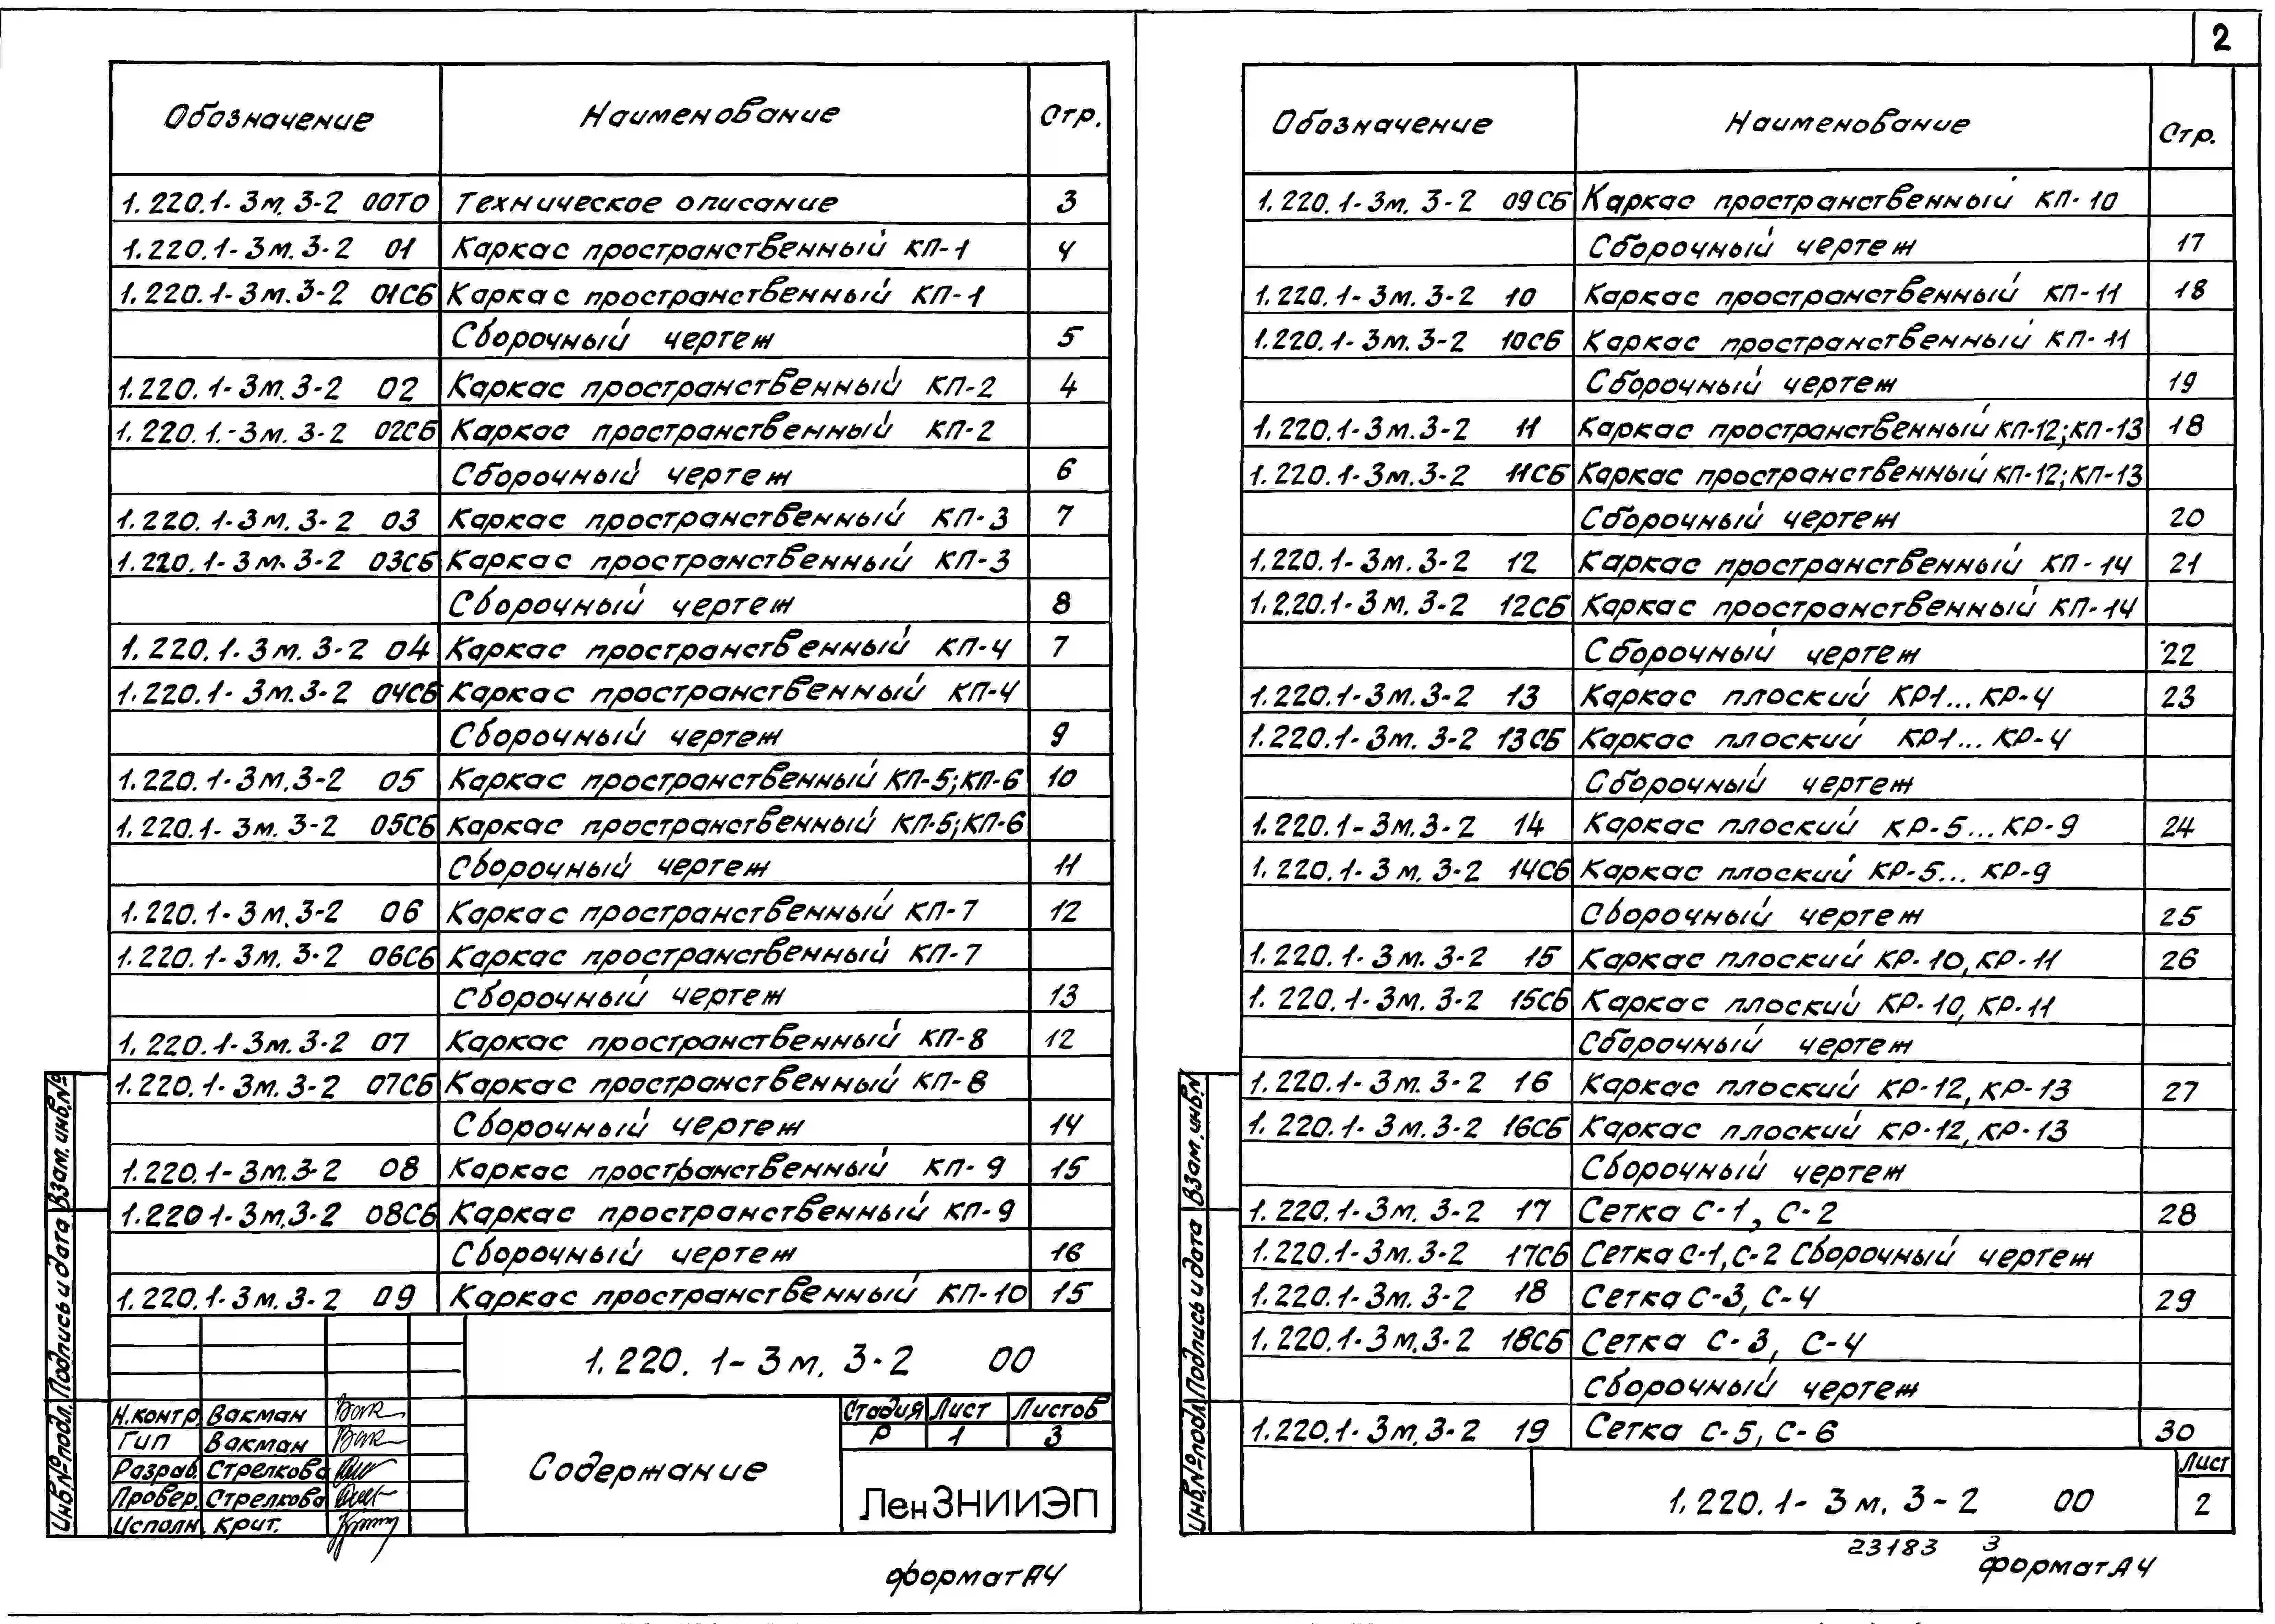 Обозначение Наименование Стр.
1.220.1-3м.3-2 00ТО Техническое описание 3
1.220.1-3м.3-2 01 Каркас пространственный КП-1 4
1.220.1-3м.3-2 01СБ Каркас пространственный КП-1
Сборочный чертеж 5
1.220.1-3м.3-2 02 Каркас пространственный КП-2 4
1.220.1.-3м.3-2 02СБ Каркас пространственный КП-2
Сборочный чертеж 6
1.220.1-3м.3-2 03 Каркас пространственный КП-3 7
1.220.1-3м.3-2 03СБ Каркас пространственный КП-3
Сборочный чертеж 8
1.220.1-3м.3-2 04 Каркас пространственный КП-4 7
1.220.1-3м.3-2 04СБ Каркас пространственный КП-4
Сборочный чертеж 9
1.220.1-3м.3-2 05 Каркас пространственный КП-5;КП-6 10
1.220.1-3м.3-2 05СБ Каркас пространственный КП-5;КП-6
Сборочный чертеж 11
1.220.1-3м.3-2 06 Каркас пространственный КП-7 12
1.220.1-3м.3-2 06СБ Каркас пространственный КП-7
Сборочный чертеж 13
1.220.1-3м.3-2 07 Каркас пространственный КП-8 12
1.220.1-3м.3-2 07СБ Каркас пространственный КП-8
Сборочный чертеж 14
1.220.1-3м.3-2 08 Каркас пространственный КП-9 15
1.220 1-3м.3-2 08СБ Каркас пространственный КП-9
Сборочный чертеж 16
1.220.1-3м.3-2 09 Каркас пространственный КП-10 15
1.220.1-3м.3-2 00
Н.контр. Вакман
ГИП Вакман
Разраб. Стрелкова
Провер. Стрелкова
Исполн. Крит.
Содержание
Стадия Лист Листов
Р 1 3
ЛенЗНИИЭП
Инв.№подл. Подпись и дата Взам.инв.№
формат А4
2
Обозначение Наименование Стр.
1.220.1-3м.3-2 09СБ Каркас пространственный КП-10
Сборочный чертеж 17
1.220.1-3м.3-2 10 Каркас пространственный КП-11 18
1.220.1-3м.3-2 10СБ Каркас пространственный КП-11
Сборочный чертеж 19
1.220.1-3м.3-2 11 Каркас пространственный КП-12;КП-13 18
1.220.1-3м.3-2 11СБ Каркас пространственный КП-12;КП-13
Сборочный чертеж 20
1.220.1-3м.3-2 12 Каркас пространственный КП-14 21
1.220.1-3м.3-2 12СБ Каркас пространственный КП-14
Сборочный чертеж 22
1.220.1-3м.3-2 13 Каркас плоский КР1...КР-4 23
1.220.1-3м.3-2 13СБ Каркас плоский КР1...КР-4
Сборочный чертеж
1.220.1-3м.3-2 14 Каркас плоский КР-5...КР-9 24
1.220.1-3м.3-2 14СБ Каркас плоский КР-5...КР-9
Сборочный чертеж 25
1.220.1-3м.3-2 15 Каркас плоский КР-10,КР-11 26
1.220.1-3м.3-2 15СБ Каркас плоский КР-10,КР-11
Сборочный чертеж
1.220.1-3м.3-2 16 Каркас плоский КР-12,КР-13 27
1.220.1-3м.3-2 16СБ Каркас плоский КР-12,КР-13
Сборочный чертеж
1.220.1-3м.3-2 17 Сетка С-1, С-2 28
1.220.1-3м.3-2 17СБ Сетка С-1,С-2 Сборочный чертеж
1.220.1-3м.3-2 18 Сетка С-3, С-4 29
1.220.1-3м.3-2 18СБ Сетка С-3, С-4
Сборочный чертеж
1.220.1-3м.3-2 19 Сетка С-5, С-6 30
1.220.1-3м.3-2 00
Лист
2
Инв.№подл. Подпись и дата Взам.инв.№
23183 3
формат А4